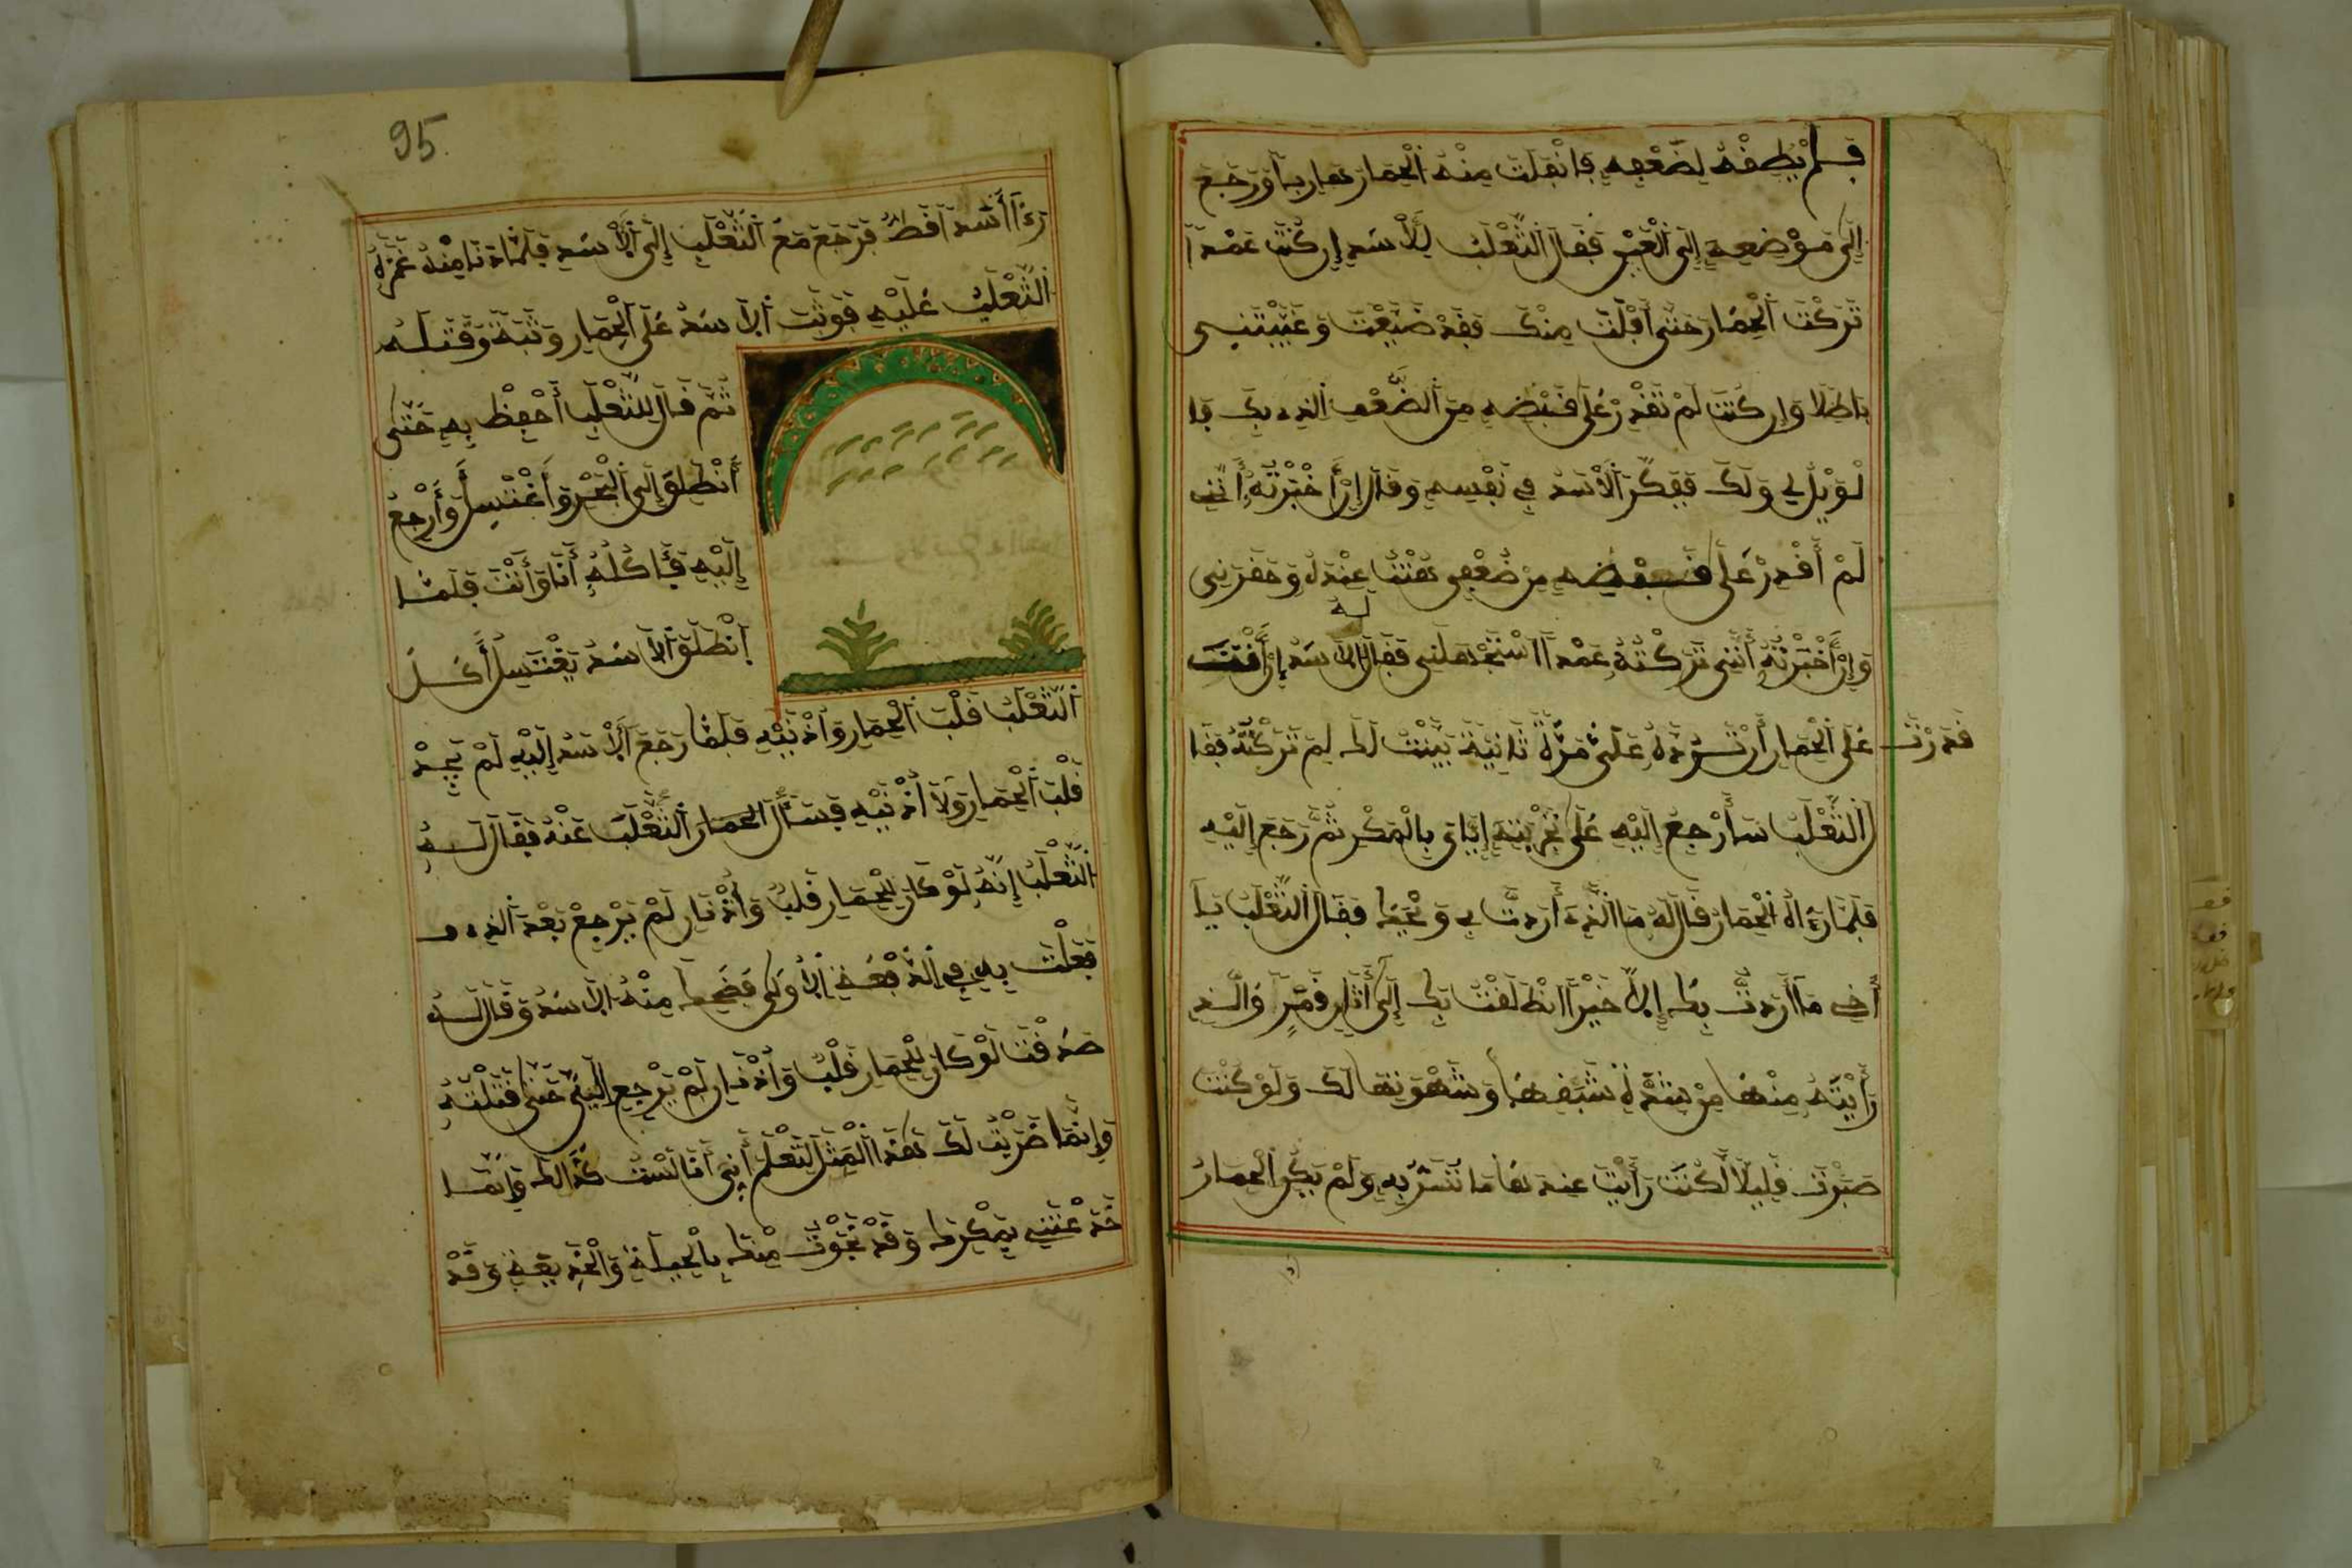 فَلَمْ يُطِفْهُ لِضُعْفِهِ فَانْفَلَتَ مِنْهُ الْحِمَارُ هَارِبًا وَرَجَعَ
إِلَى مَوْضِعِهِ إِلَى الْعَيْرِ فَقَالَ الثَّعْلَبُ لِلْأَسَدِ إِن كُنْتَ عَمْدًا
تَرَكْتَ الْحِمَارَ حَتَّى أَفْلَتَ مِنْكَ فَقَدْ ضَيَّعْتَ وَعَيَّبْتَنِي
بَاطِلًا وَإِن كُنْتَ لَمْ تَقْدِرْ عَلَى قَبْضِهِ مِنَ الضُّعْفِ الَّذِي بِكَ فَا
لْوَيْلُ لِي وَلَكَ فَفَكَّرَ الْأَسَدُ فِي نَفْسِهِ وَقَالَ إِنْ أَخْبَرْتُهُ أَنَّنِي
لَمْ أَقْدِرْ عَلَى قَبْضِهِ مِنْ ضُعْفِي هُنْتُ عِنْدَهُ وَحَقَرَنِي
وَإِنْ أَخْبَرْتُهُ أَنَّنِي تَرَكْتُهُ عَمْدًا اسْتَجْهَلَنِي فَقَالَ لَهُ الْأَسَدُ إِنْ أَنْتَ
قَدَرْتَ عَلَى الْحِمَارِ أَنْ تَرُدَّهُ عَلَيَّ مَرَّةً ثَانِيَةً بَيَّنْتُ لَكَ لِمَ تَرَكْتُهُ فَقَا
لَ الثَّعْلَبُ سَأَرْجِعُ إِلَيْهِ عَلَى تَجْرِبَتِهِ إِيَّايَ بِالْمَكْرِ ثُمَّ رَجَعَ إِلَيْهِ
فَلَمَّا رَءَاهُ الْحِمَارُ قَالَ لَهُ مَا الَّذِي أَرَدتَّ بِي وَيْحَكَ فَقَالَ الثَّعْلَبُ يَا
أَخِي مَا أَرَدتُّ بِكَ إِلَّا خَيْرًا انْطَلَقْتُ بِكَ إِلَى أُتُنٍ قُمْرٍ وَالَّذِي
رَأَيْتَهُ مِنْهَا مِنْ شِدَّةِ شَبَقِهَا وَشَهْوَتِهَا لَكَ وَلَوْ كُنْتَ
صَبَرْتَ قَلِيلًا لَكُنْتَ رَأَيْتَ عِنْدَهَا مَا تُسَرُّ بِهِ وَلَمْ يَكُنِ الْحِمَارُ
95
رَءَا أَسَدًا قَطُّ فَرَجَعَ مَعَ الثَّعْلَبِ إِلَى الْأَسَدِ فَلَمَّا دَنَا مِنْهُ غَمَزَهُ
الثَّعْلَبُ عَلَيْهِ فَوَثَبَ الْأَسَدُ عَلَى الْحِمَارِ وَثْبَةً وَقَتَلَهُ
ثُمَّ قَالَ لِلثَّعْلَبِ أَحْفِظْ بِهِ حَتَّى
أَنْطَلِقَ إِلَى الْبَحْرِ وَأَغْتَسِلَ وَأَرْجِعُ
إِلَيْهِ فَنَأْكُلُهُ أَنَا وَأَنْتَ فَلَمَّا
انْطَلَقَ الْأَسَدُ يَغْتَسِلُ أَكَلَ
الثَّعْلَبُ قَلْبَ الْحِمَارِ وَأُذْنَيْهِ فَلَمَّا رَجَعَ الْأَسَدُ إِلَيْهِ لَمْ يَجِدْ
قَلْبَ الْحِمَارِ وَلَا أُذْنَيْهِ فَسَأَلَ الحمار الثَّعْلَبَ عَنْهُ فَقَالَ لَهُ
الثَّعْلَبُ إِنَّهُ لَوْ كَانَ لِلْحِمَارِ قَلْبٌ وَأُذْنَانِ لَمْ يَرْجِعْ بَعْدَ الَّذِي
فَعَلْتَ بِهِ فِي الدُّفْعَةِ الْأُولَى فَضَحِكَ مِنْهُ الْأَسَدُ وَقَالَ لَهُ
صَدَقْتَ لَوْ كَانَ لِلْحِمَارِ قَلْبٌ وَأُذْنَانِ لَمْ يَرْجِعْ إِلَيَّ حَتَّى قَتَلْتُهُ
وَإِنَّمَا ضَرَبْتُ لَكَ هَذَا الْمَثَلَ لِتَعْلَمَ أَنِّي أَنَا لَسْتُ كَذَالِكَ وَإِنَّمَا
خَدَعْتَنِي بِمَكْرِكَ وَقَدْ نَجَوْتُ مِنْكَ بِالْحِيلَةِ وَالْخَدِيعَةِ وَقَدْ